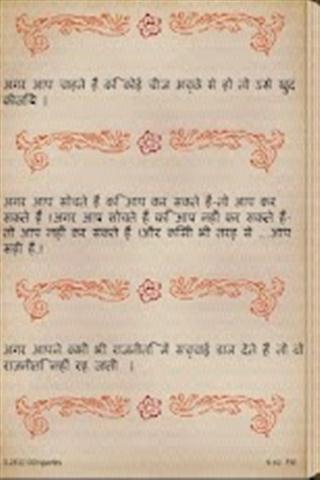 अगर आप चाहते हैं कि कोई चीज अच्छे से हो तो उसे खुद
कीजिये ।
अगर आप सोचते हैं कि आप कर सकते हैं-तो आप कर
सकते हैं ।अगर आप सोचते हैं कि आप नहीं कर सकते हैं-
तो आप नहीं कर सकते हैं ।और किसी भी तरह से ...आप
सही हैं.।
अगर आपने कभी भी राजनीति में सच्चाई डाल देते हैं तो वो
राजनीति नहीं रह जाती ।